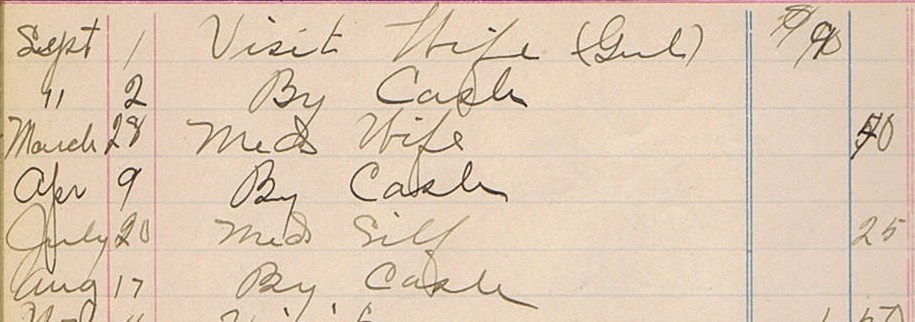 Sept 1 Visit Wife (Girl)
" 2 By Cash
March 28 Meds Wife 50
Apr 9 By Cash
July 20 Med Self 25
Aug 17 By Cash